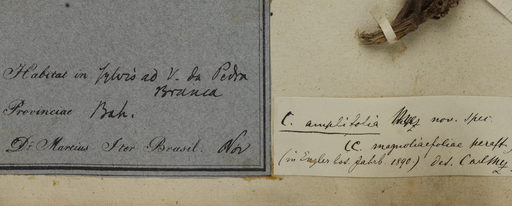 Habitat in sylvis ad V. da Pedra
Branca
Provinciae Bah.
Dr. Martius Iter Brasil. Nov
C. amplifolia Mez nov. spec.
(C. magnoliaefoliae peraff.)
(in Engler bot. Jahrb. 1890) det. Carl Mez